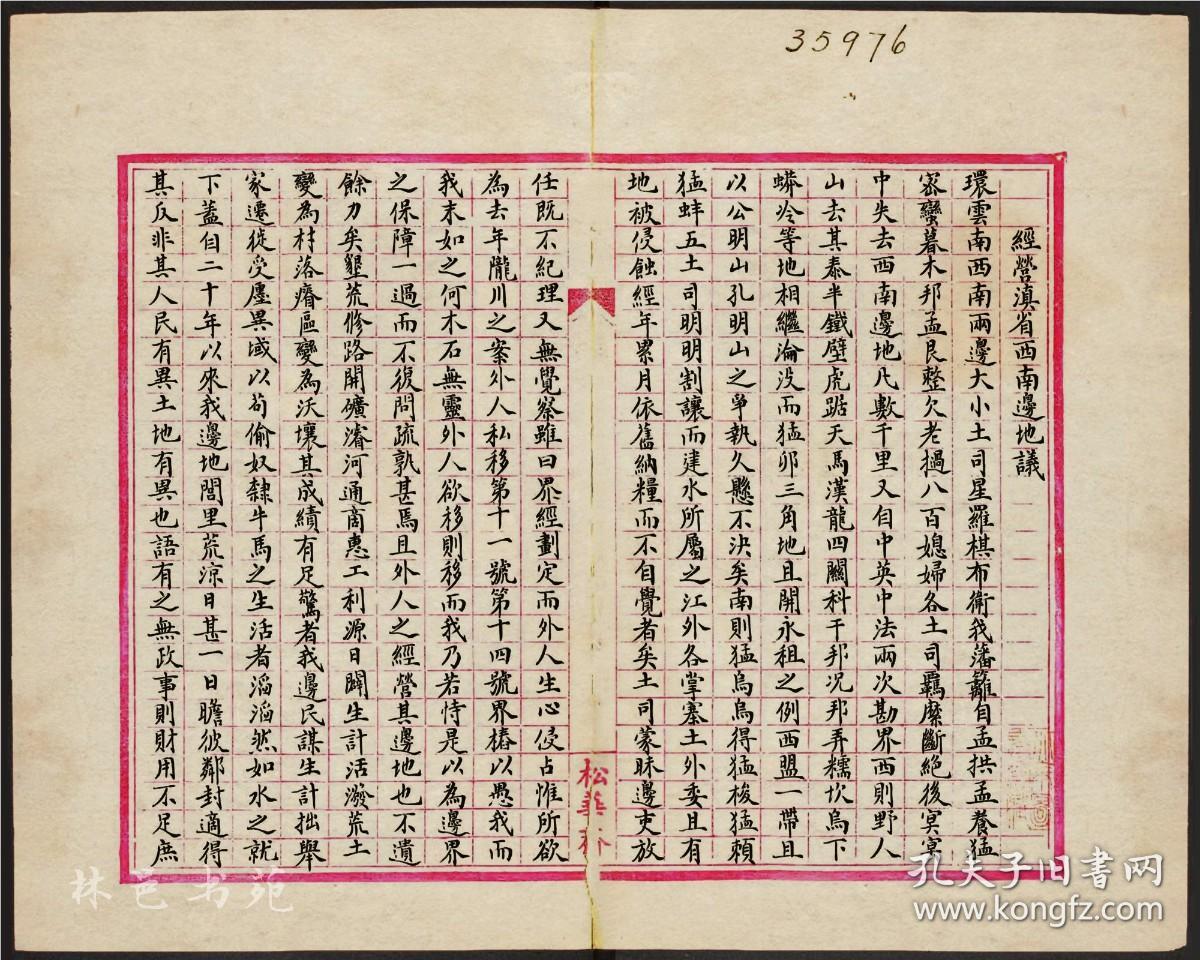 35976
經營滇省西南邊地議
環雲南西南兩邊大小土司星羅棋布衛我藩籬自孟拱孟養猛
密蠻暮木邦孟艮整欠老撾八百媳婦各土司羈縻斷絕後冥冥
中失去西南邊地凡數千里又自中英中法兩次勘界西則野人
山去其泰半鐵壁虎踞天馬漢龍四關科干邦況邦弄糯坎烏下
蟒冷等地相繼淪沒而猛卯三角地且開永租之例西盟一帶且
以公明山孔明山之爭執久懸不決矣南則猛烏烏得猛梭猛賴
猛蚌五土司明明割讓而建水所屬之江外各掌寨土外委且有
地被侵蝕經年累月依舊納糧而不自覺者矣土司蒙昧邊吏放
任既不紀理又無覺察雖曰界經劃定而外人生心侵占惟所欲
為去年隴川之案外人私移第十一號第十四號界樁以愚我而
我末如之何木石無靈外人欲移則移而我乃若恃是以為邊界
之保障一過而不復問疏孰甚焉且外人之經營其邊地也不遺
餘力矣墾荒修路開礦濬河通商惠工利源日闢生計活潑荒土
變為村落瘠區變為沃壤其成績有足驚者我邊民謀生計拙舉
家遷徙受廛異域以苟偷奴隸牛馬之生活者滔滔然如水之就
下蓋自二十年以來我邊地閭里荒涼日甚一日瞻彼鄰封適得
其反非其人民有異土地有異也語有之無政事則財用不足庶
松華齋
林邑书苑
孔夫子旧书网
www.kongfz.com